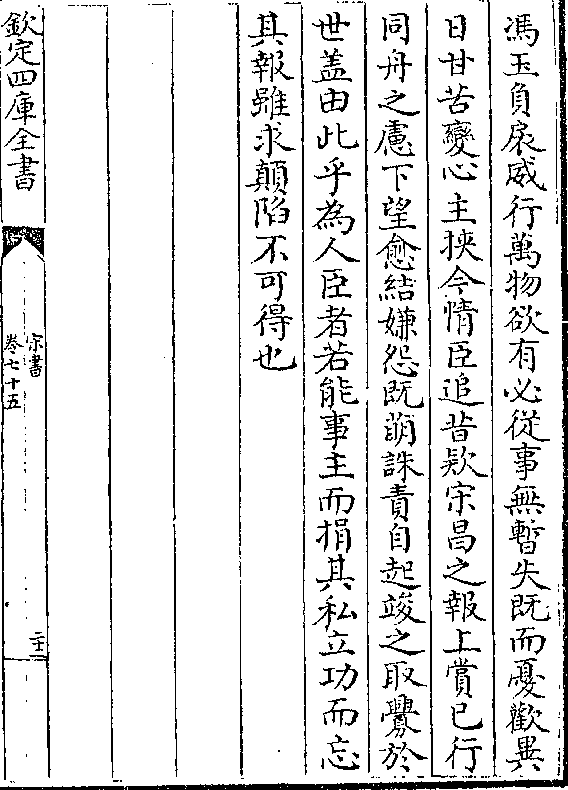 馮玉負扆威行萬物欲有必從事無暫失既而憂歡異
日甘苦變心主挾今情臣追昔欵宋昌之報上賞已行
同舟之慮下望愈結嫌怨既萌誅責自起竣之取釁於
世盖由此乎為人臣者若能事主而捐其私立功而忘
其報雖求顛陷不可得也
欽定四庫全書
宋書
卷七十五